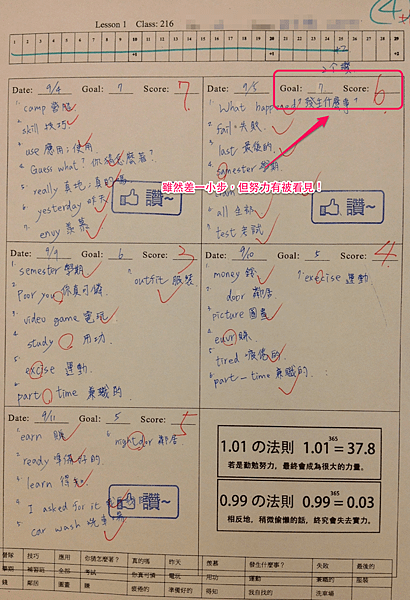 Lesson 1 Class: 216
4
1 2 3 4 5 6 7 8 9 10 11 12 13 14 15 16 17 18 19 20 21 22 23 24 25 26 27 28 29
+10 +20
+2
Date: 9/4 Goal: 7 Score: 7
1. camp 營隊
2. skill 技巧
3. use 應用;使用
Guess what? 你猜怎麼著?
5. really 真地;真的嗎
6. yesterday 昨天
7. envy 羨慕
讚~
Date: 9/5 Goal: 7 Score: 6
1. What happened? 發生什麼事?
2. fail 失敗
3. last 最後的
4. semester 學期
雖然差一小步,但努力有被看見!
6. all 全部
7. test 考試
讚~
Date: 9/9 Goal: 6 Score: 3
1. semester 學期
2. Poor you 你真可憐
3. video game 電玩
4. study 用功
5. excise 運動
6. part time 兼職的
7. outfit 服裝
Date: 9/10 Goal: 5 Score: 4
1. money 錢
door 鄰居
4. picture 圖畫
賺
5. tired 疲倦的
6. part-time 兼職的
7. exercise 運動
Date: 9/11 Goal: 5 Score: 5
1. earn 賺
2. ready 準備好的
3. learn 得知
4. I asked for it
5. car wash 洗車場
6. 鄰居
讚~
1.01 の法則 1.01^365 = 37.8
若是勤勉努力,最終會成為很大的力量。
0.99 の法則 0.99^365 = 0.03
相反地,稍微偷懶的話,終究會失去實力。
營隊 技巧 應用 你猜怎麼著? 真的嗎 昨天 羨慕 發生什麼事? 失敗 最後的
學期 補習班 全部 考試 你真可憐 電玩 用功 運動 兼職的 服裝
錢 鄰居 圖畫 賺 疲倦的 準備好的 得知 我自找的 洗車場